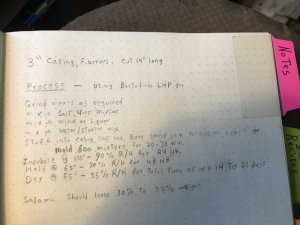 3" Casing, Fibrous, Cut 14" long
Process - Using Bactoferm LHP dry
Grind meats as required
mix in Salt, Cure mixture
mix in wine or liquor
mix in
mix
Stuff into casing that has been
or
mold 600 mixture for 20-30 min
Incubate @ 100° - 90% R/H for 24 HR
Hold @ 65° - 70% R/H for 48 HR
Dry @ 55° - 55% R/H for total time of up to 14 to 21 days
Salami should loose 30% to 35% weight
NOTES
Recipes